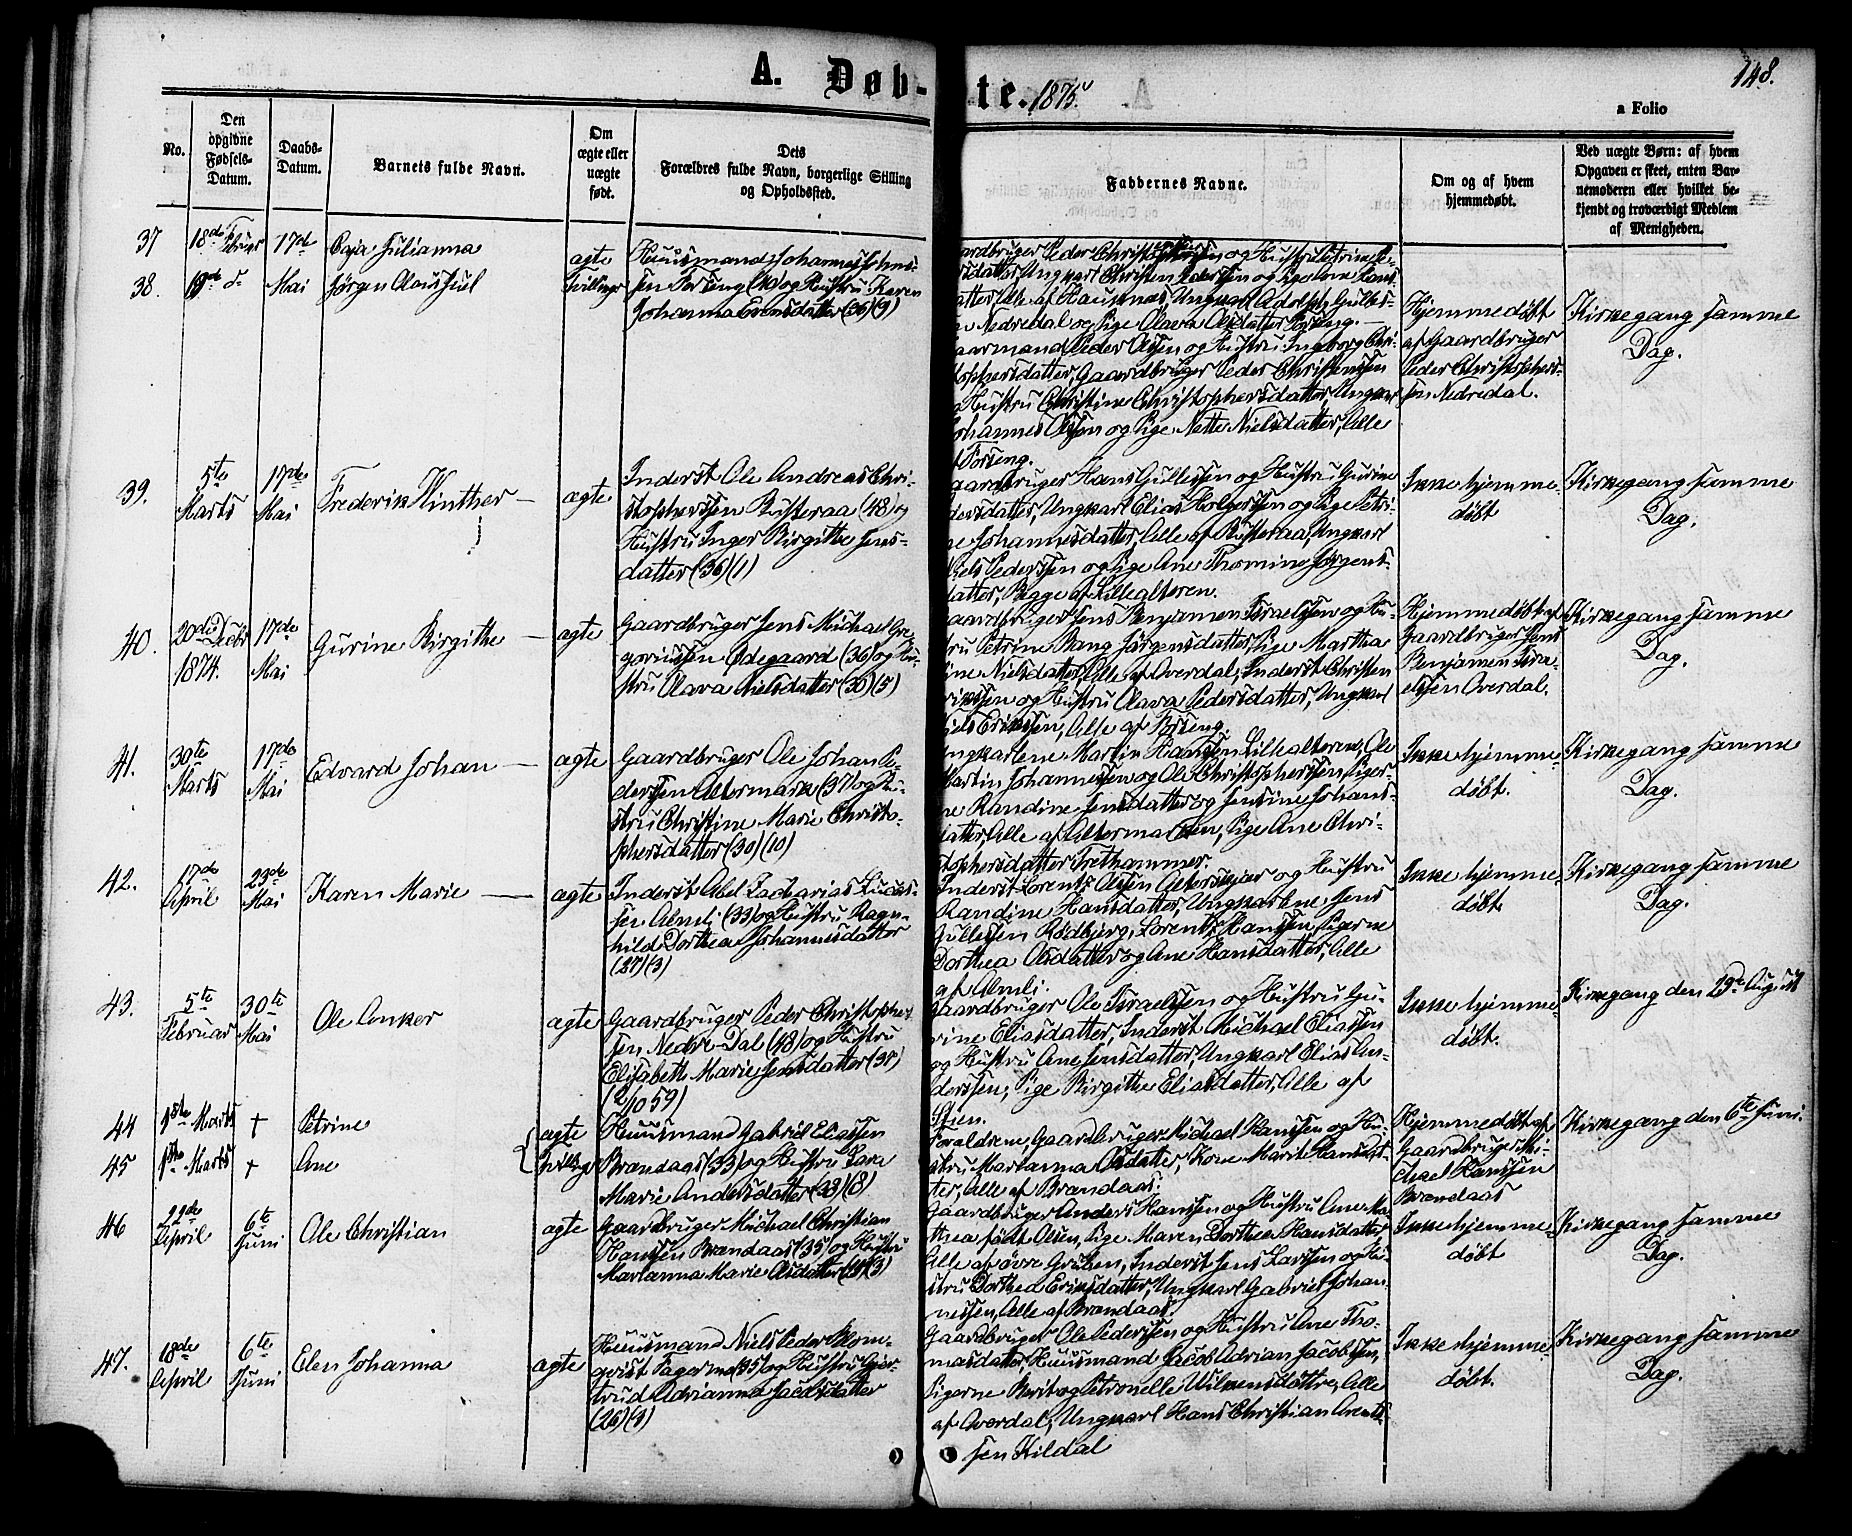 A. Døb-te. 1875.
148.
a Folio
No.
Den opgivne Fødsels-Datum.
Daabs-Datum.
Barnets fulde Navn.
Om ægte eller uægte født.
Dets Forældres fulde Navn, borgerlige Stilling og Opholdssted.
Faddernes Navne.
Om og af hvem hjemmedøbt.
Ved uægte Børn: af hvem Opgaven er skeet, enten Barnemoderen eller hvilket bekjendt og troværdigt Medlem af Menigheden.
37
18de Februar
17de
Caja Julianna
ægte
38.
19de d
Mai
Jørgen Claus Juul
Tvillinger
Huusmand Johannes Johns-
sen Forseng (40) og Hustru Karen
Johanna Evensdatter (36) (9)
aardbruger Peder Christophersen og Hustru Petrine Pe-
datter, Ungkarl Christen Pedersen og Pige Ane Hans
atter, Alle af Hausnæs, Ungkarl Adolph Gulles-
n Nedredal og Pige Olava Olsdatter Forseng. —
aarmand Peder Olssen og Hustru Ingeborg Chri-
stophersdatter, Gaardbruger Peder Christenssen
Hustru Christine Christophersdatter, Ungkarl
Johannes Olssen og Pige Nette Nielsdatter, Alle
f Forseng.
Hjemmedøbt
af Gaardbruger
Peder Christophers-
sen Nedredal.
Kirkegang samme
Dag.
39.
5te
Marts
17de
Mai
Frederik Winther —
ægte
Inderst Ole Andreas Chri-
stophersen Russeraa (48) og
Hustru Inger Birgitte Jens-
datter (36) (1)
aardbruger Hans Gullessen og Hustru Gurine
dersdatter, Ungkarl Elias Holgersen og Pige Petri-
ne Johannesdatter, Alle af Russeraa, Ungkarl
Niels Pederssen og Pige Ane Thomine Jørgens-
datter, Begge af Lillealteren.
Ikke hjemme-
døbt
Kirkegang samme
Dag.
40.
20de Decbr
1874.
17de
Mai
Gurine Birgitte —
ægte
Gaardbruger Jens Michael Gre-
goriussen Ødegaard (36) og Hu-
stru Olava Nielsdatter (30) (5)
aardbruger Jens Benjamin Israelssen og Hu-
tru Petrine Bang Jørgensdatter, Pige Martha
ine Nielsdatter, Alle af Overdal, Inderst Christen
rikssen og Hustru Olava Pedersdatter, Ungkarl
iels Erikssen, Alle af Forseng.
Hjemmedøbt af
Gaardbruger Jens
Benjamin Isra-
elssen Overdal.
Kirkegang samme
Dag.
41.
30te
Marts
17de
Mai
Edvard Johan —
ægte
Gaardbruger Ole Johan Pe-
derssen Altermark (37) og Hu-
stru Christine Marie Christo-
phersdatter (30) (10)
ngkarlene Martin Hanssen Lillealteren, Ole
Martin Johannessen og Ole Christophersen, Piger-
ne Randine Jensdatter og Jensine Johans-
datter, Alle af Altermarken, Pige Ane Chri-
stophersdatter Trethammer.
Ikke hjemme-
døbt.
Kirkegang samme
Dag.
42.
17de
April
23de
Mai
Karen Marie —
ægte
Inderst Abel Zacharias Lucas-
sen Almli (33) og Hustru Ragn-
hild Dorthea Johannesdatter
(27) (3)
Inderst Lorents Olssen Alterskjær og Hustru
Randine Hansdatter, Ungkarlene Jens
Gullessen Rødbjerg, Lorents Hanssen, Pigerne
Dorthea Olsdatter og Ane Hansdatter, Alle
af Almli.
Ikke hjemme-
døbt.
Kirkegang samme
Dag.
43.
5te
Februar
30te
Mai
Ole Anker
ægte
Gaardbruger Peder Christophers-
sen Nedre-Dal (48) og Hustru
Elisabeth Marie Jensdatter (38)
Gaardbruger Ole Israelssen og Hustru Gu-
rine Eliasdatter, Inderst Michael Eliassen
og Hustru Ane Jensdatter, Ungkarl Elias An-
derssen, Pige Birgitte Eliasdatter, Alle af
Stien.
Ikke hjemme-
døbt.
Kirkegang den 29de August
44
18de Marts
+
Petrine
ægte
45
18de Marts
+
Ane
Tvillinger
Huusmand Gabriel Eliassen
Brændaas (33) og Hustru Lava
Marie Andersdatter (38) (8)
Forældrene, Gaardbruger Michael Hanssen og Hu-
stru Marianna Olsdatter, Kone Marit Hansdat-
ter, Alle af Brændaas.
Hjemmedøbt af
Gaardbruger Mi-
chael Hanssen
Brændaas
Kirkegang den 6te Juni.
46
22de
April
6te
Juni
Ole Christian
ægte
Gaardbruger Michael Christian
Hanssen Brændaas (35) og Hustru
Marianna Marie Olsdatter (3)
Gaardbruger Anders Hanssen og Hustru Ane Ma-
thea født Olsen, Pige Maren Dorthea Hansdatter,
Alle af øvre Gruben, Inderst Jens Larssen og Hu-
stru Dorthea Eriksdatter, Ungkarl Gabriel Johan-
nessen, Alle af Brændaas.
Ikke hjemme-
døbt
Kirkegang samme
Dag.
47.
18de
April
6te
Juni
Elen Johanna
ægte
Huusmand Niels Peder Blom-
qvist Fagermo (35) og Hustru Gjer-
trud Adrianna Jacobsdatter
(26) (1)
Gaardbruger Ole Pederssen og Hustru Ane Tho-
masdatter, Huusmand Jacob Adrian Jacobssen,
Pigerne Berit og Petronelle Wilkensdøttre, Alle
af Overdal, Ungkarl Hans Christian Arents-
sen Kildal
Ikke hjemme-
døbt.
Kirkegang samme
Dag.